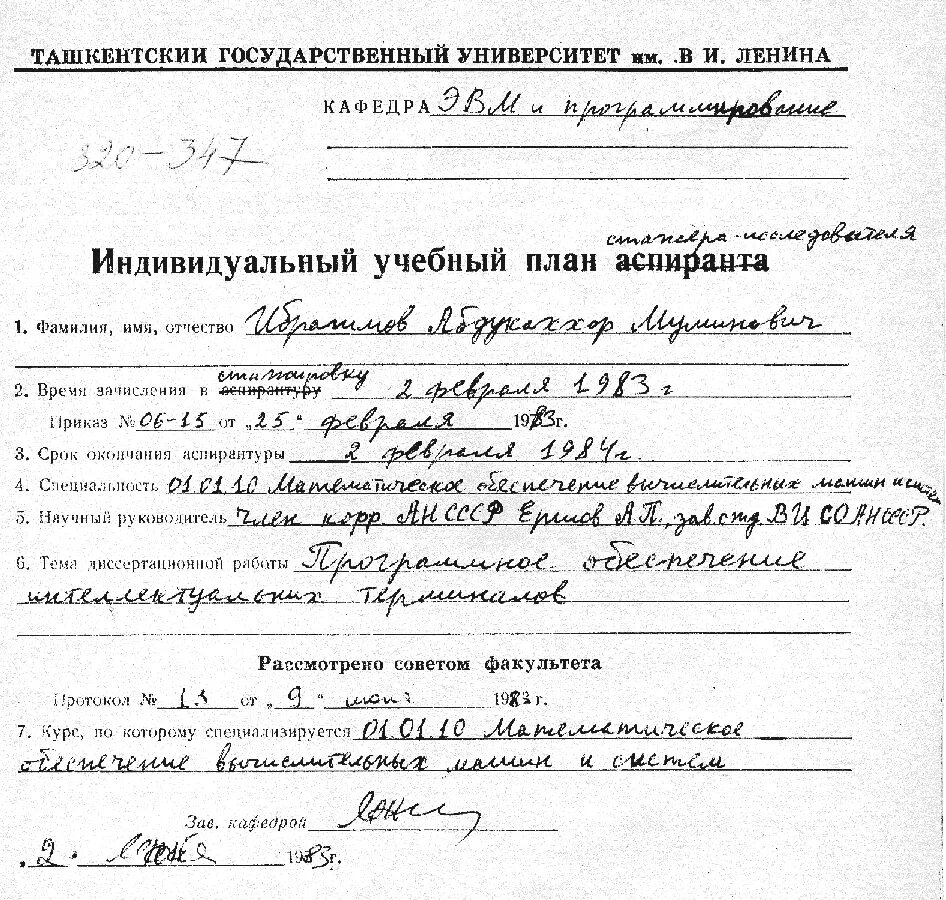 ТАШКЕНТСКИЙ ГОСУДАРСТВЕННЫЙ УНИВЕРСИТЕТ им. .В И. ЛЕНИНА
КАФЕДРА ЭВМ и программирование
320-347
стажера-исследователя
Индивидуальный учебный план аспиранта
1. Фамилия, имя, отчество Ибрагимов Абдукаххор Муминович
стажировку
2. Время зачисления в аспирантуру 2 февраля 1983 г
Приказ № 06-15 от „25" февраля 1983г.
3. Срок окончания аспирантуры 2 февраля 1984г.
4. Специальность 01.01.10 Математическое обеспечение вычислительных машин и систем
5. Научный руководитель член корр АН СССР Ершов А.П., зав.отд ВЦ СОАНСССР.
6. Тема диссертационной работы Программное обеспечение
интеллектуальных терминалов
Рассмотрено советом факультета
Протокол № 13 от „9" 1983 г.
7. Курс, по которому специализируется 01.01.10 Математическое
обеспечение вычислительных машин и систем
Зав. кафедрой
„2" 1983г.